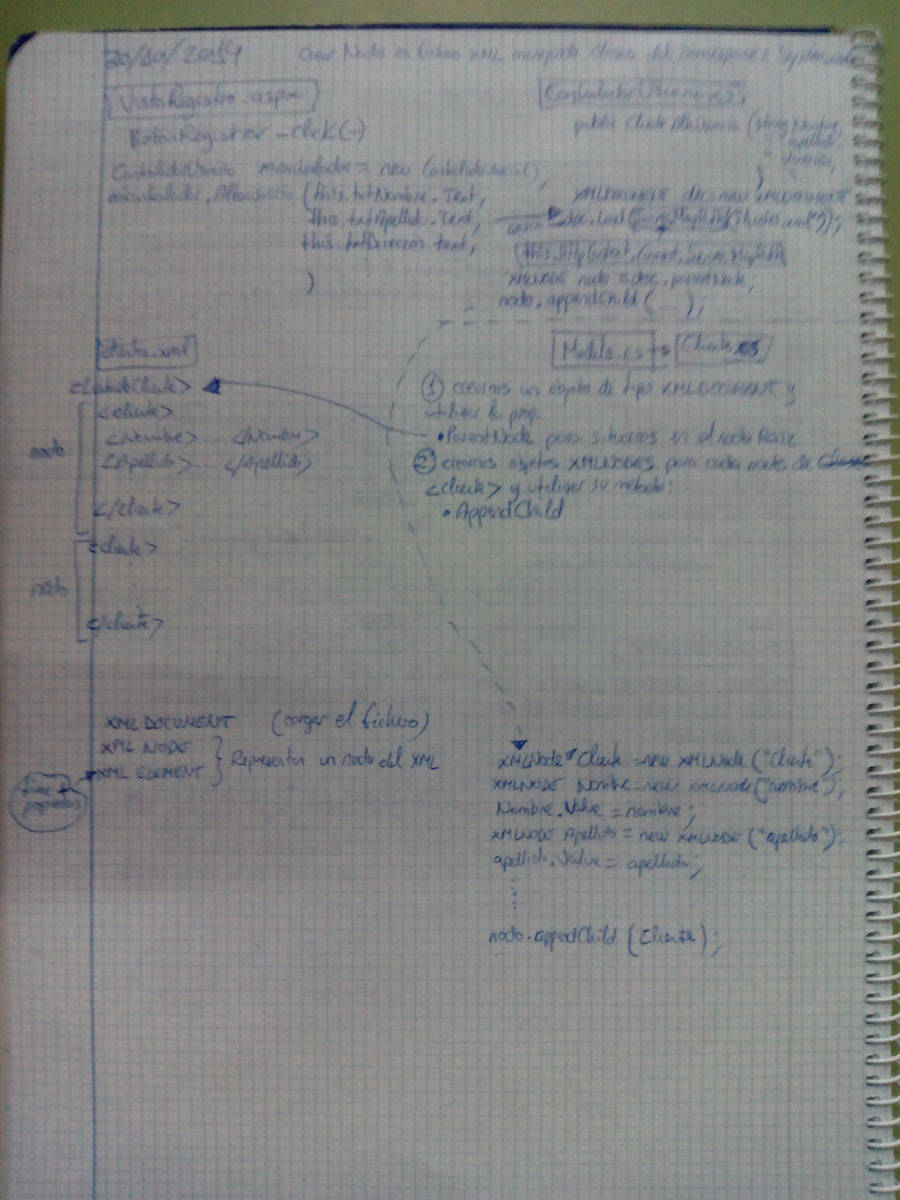 30/10/2014 Crear Nodos en fichero XML mediante clases del namespace: System.
VistaRegistro.aspx
BotonRegistrar_click(..)
ControladorUsuario micontrolador = new ControladorUsuario();
micontrolador.AltaUsuario (this.txtNombre.Text,
this.txtApellido.Text,
this.txtDireccion.text,
)
ControladorUsuario.cs
public Cliente AltaUsuario (string nombre,
" apellido,
" direccion,
)
XMLDOCUMENT doc = new XMLDOCUMENT
doc.Load( ("clientes.xml"));
this.HttpContext.Current.Server.MapPath
XMLNODE nodo = doc.parentNode;
nodo.appendChild (....);
clientes.xml
<ListaCliente>
<cliente>
<Nombre> ... </Nombre>
nodo
<Apellido> ... </Apellido>
</cliente>
<cliente>
nodo
</cliente>
Modelo.cs → Cliente.cs
① creamos un objeto de tipo XMLDOCUMENT y
utilizar la prop.
• ParentNode para situarnos en el nodo Raiz
② creamos objetos XMLNODES para cada nodos de
<cliente> y utilizar su metodo:
• AppendChild
XML DOCUMENT (cargar el fichero)
XML NODE
XML ELEMENT } Representan un nodo del XML
tiene +
propiedades
XMLNode Cliente = new XMLNode ("Cliente");
XMLNODE Nombre = new XMLnode("nombre");
Nombre.Value = nombre;
XMLNODE Apellido = new XMLNODE ("apellido");
apellido.Value = apellido;
nodo.appendChild (Cliente);